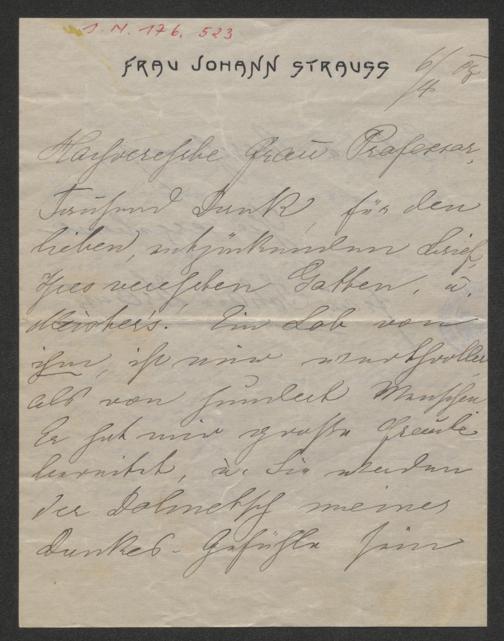 I. N. 176.523
FRAU JOHANN STRAUSS
6/4
Hochverehrte Frau Professor,
Tausend Dank, für den
lieben, entzückenden Brief,
Ihres verehrten Gatten, u.
Meisters! Ein Lob von
ihm, ist mir werthvoller
als von hundert Menschen
Er hat mir große Freude
bereitet, u. Sie werden
der Dolmetsch meines
Dankes-Gefühls sein